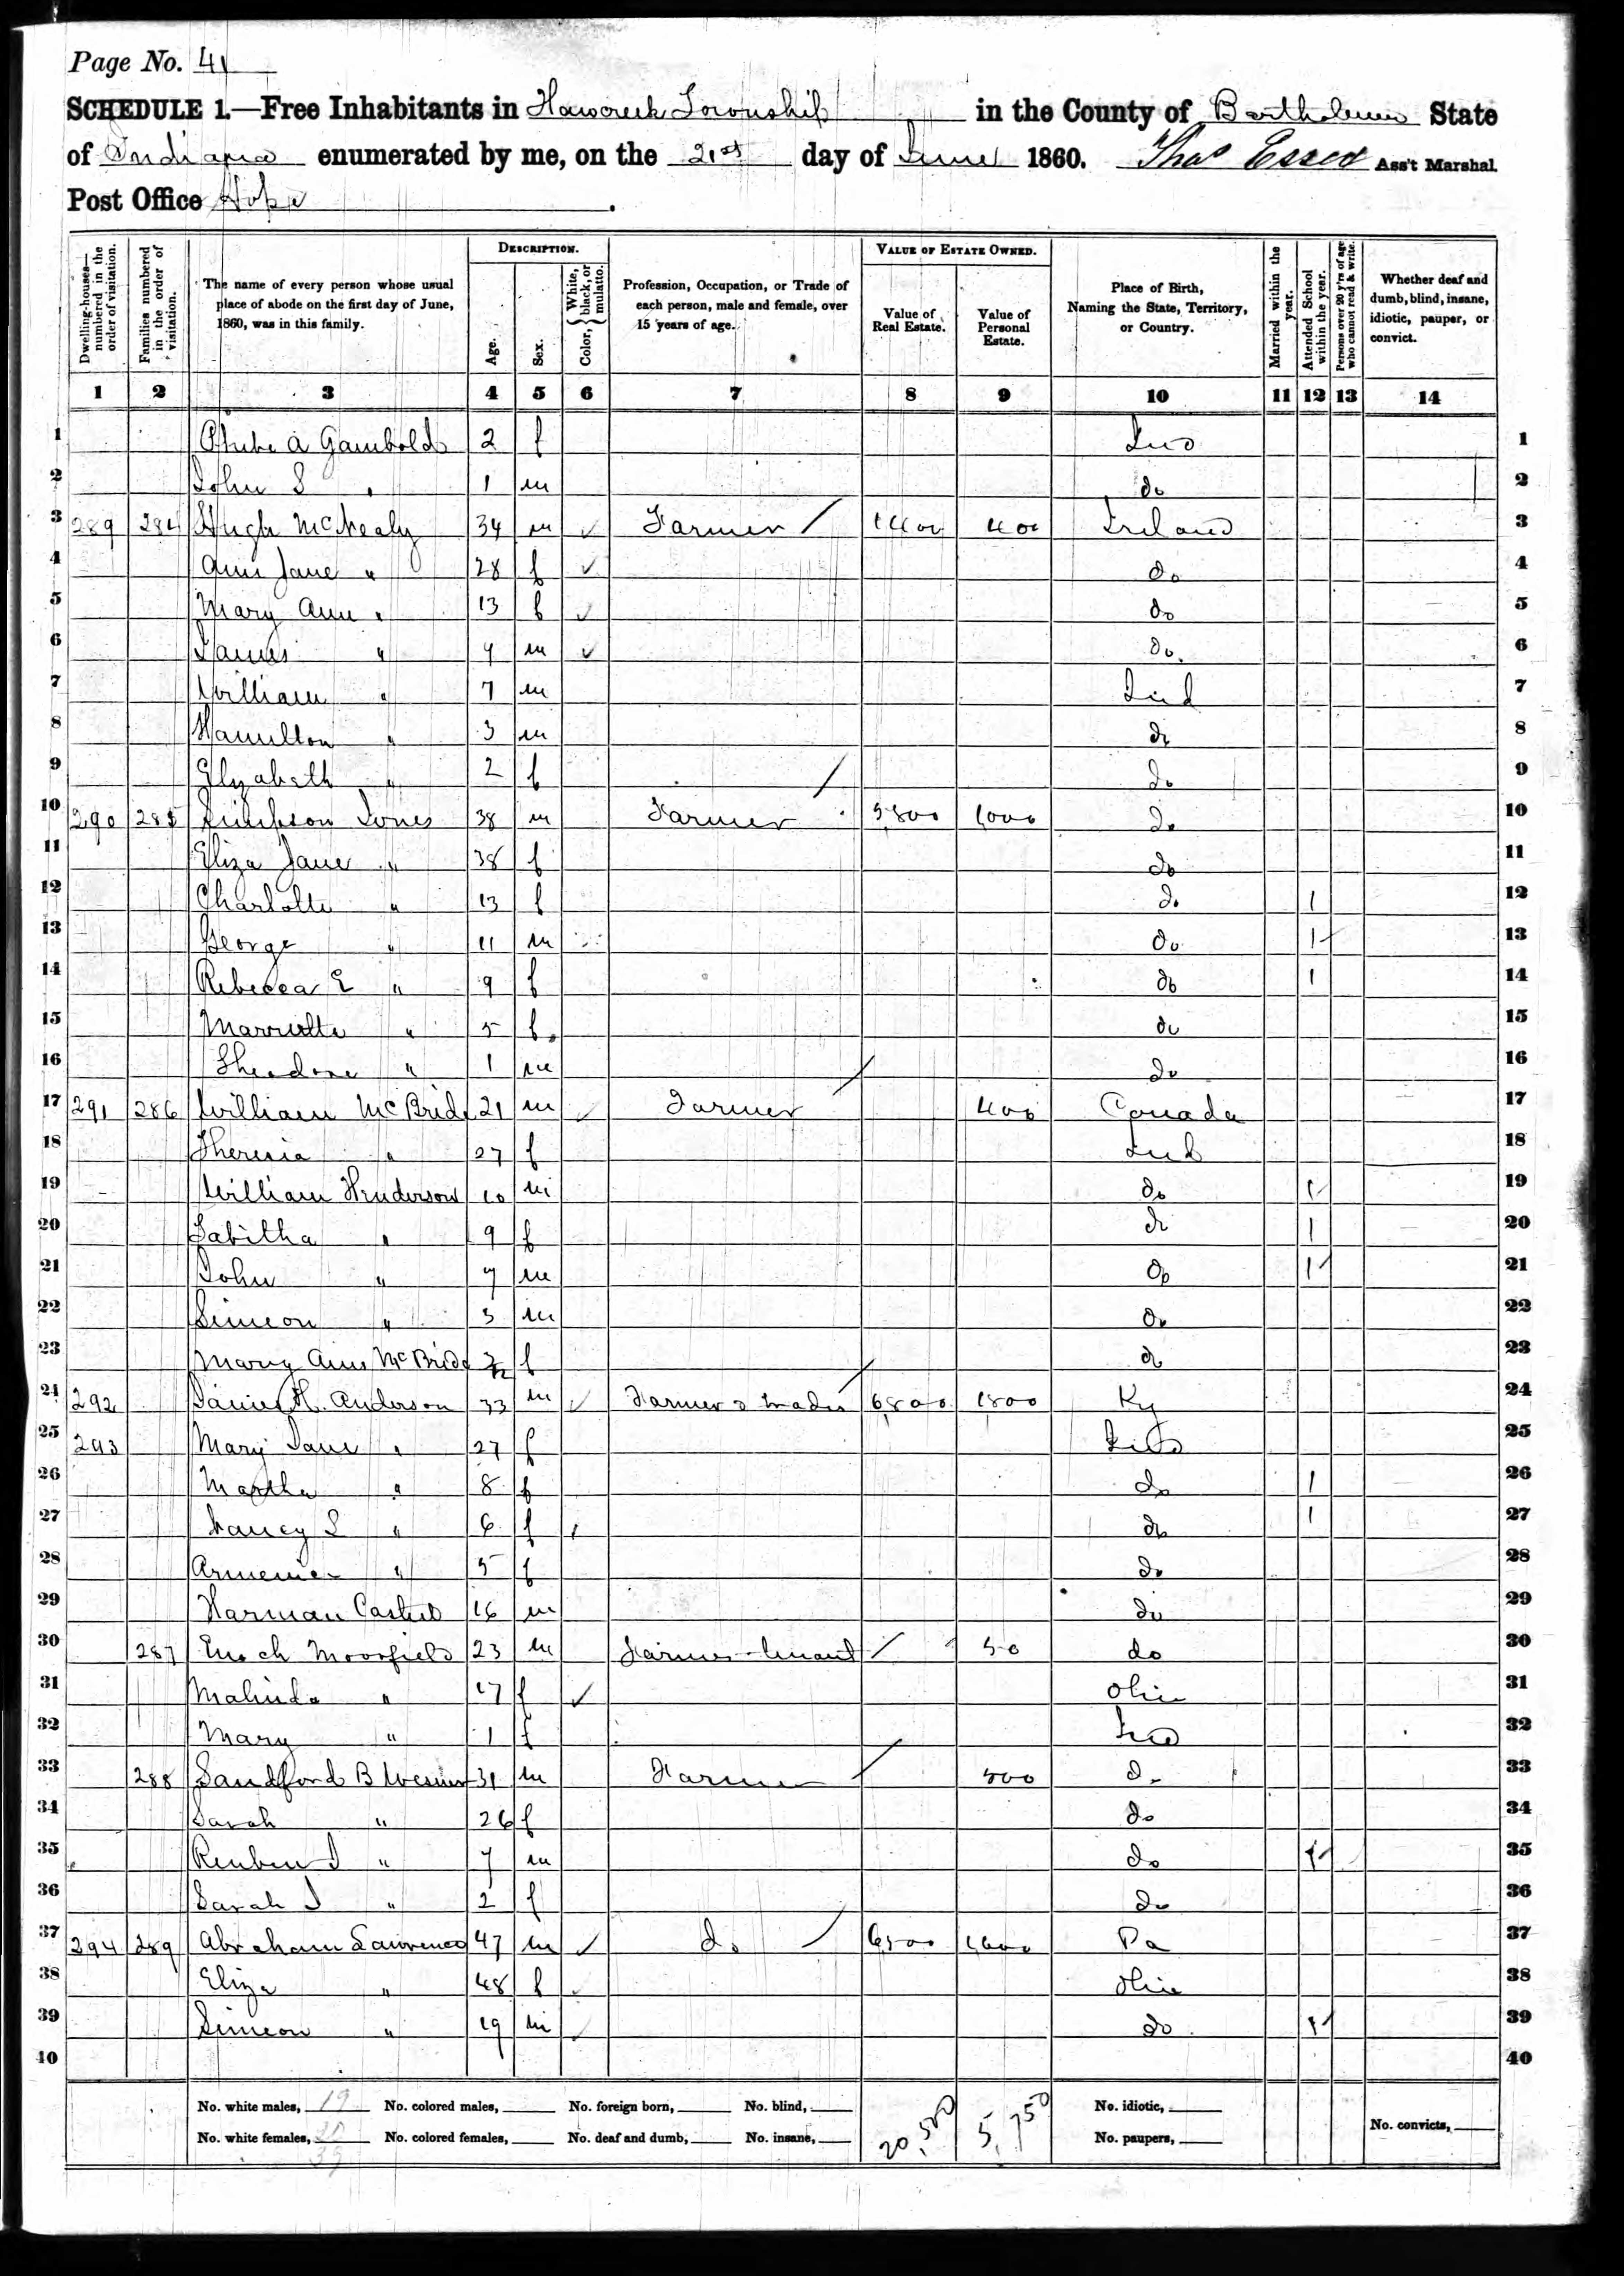 Page No. 41
SCHEDULE 1.—Free Inhabitants in Hawcreek Township in the County of Bartholomew State
of Indiana enumerated by me, on the 21st day of June 1860. Thos Essex Ass't Marshal.
Post Office Hope
Dwelling-houses—numbered in the order of visitation.
Families numbered in the order of visitation.
The name of every person whose usual place of abode on the first day of June, 1860, was in this family.
DESCRIPTION.
Age.
Sex.
Color, { White, black, or mulatto.
Profession, Occupation, or Trade of each person, male and female, over 15 years of age.
VALUE OF ESTATE OWNED.
Value of Real Estate.
Value of Personal Estate.
Place of Birth, Naming the State, Territory, or Country.
Married within the year.
Attended School within the year.
Persons over 20 y'rs of age who cannot read & write.
Whether deaf and dumb, blind, insane, idiotic, pauper, or convict.
1 2 3 4 5 6 7 8 9 10 11 12 13 14
1 Phebe A Gambold 2 f Ind 1
2 John S " 1 m do 2
3 289 284 Hugh McNealy 34 m Farmer 1400 400 Ireland 3
4 Ann Jane " 28 f do 4
5 Mary Ann " 13 f do 5
6 James " 9 m do 6
7 William " 7 m Ind 7
8 Hamilton " 3 m do 8
9 Elyzabeth " 2 f do 9
10 290 285 Simpson Jones 38 m Farmer 5800 1,000 do 10
11 Eliza Jane " 38 f do 11
12 Charlotte " 13 f do 1 12
13 George " 11 m do 1 13
14 Rebecca E " 9 f do 1 14
15 Marriette " 5 f do 15
16 Theodore " 1 m do 16
17 291 286 William McBride 21 m Farmer 400 Canada 17
18 Theresia " 27 f Ind 18
19 William Henderson 10 m do 1 19
20 Tabitha " 9 f do 1 20
21 John " 7 m do 1 21
22 Simeon " 3 m do 22
23 Mary Ann McBride f do 23
24 292 James H. Anderson 33 m Farmer & trader 6,800 1800 Ky 24
25 293 Mary Jane " 27 f Ind 25
26 Martha " 8 f do 1 26
27 Nancy S " 6 f do 1 27
28 Armenia " 5 f do 28
29 Harman 16 m do 29
30 287 Enoch Moorfield 23 m Farmer-tenant 50 do 30
31 Malinda " 17 f Ohio 31
32 Mary " 1 f Ind 32
33 288 Sandford B 31 m Farmer 500 do 33
34 Sarah " 26 f do 34
35 Reuben J " 7 m do 1 35
36 Sarah J " 2 f do 36
37 294 289 Abraham Lawrence 47 m do 6500 1,600 Pa 37
38 Eliza " 48 f Ohio 38
39 Simeon " 19 m do 1 39
40 40
No. white males, 19 No. colored males, No. foreign born, No. blind, 20,500 5,750 No. idiotic, No. convicts,
No. white females, 20 No. colored females, No. deaf and dumb, No. insane, No. paupers,
39